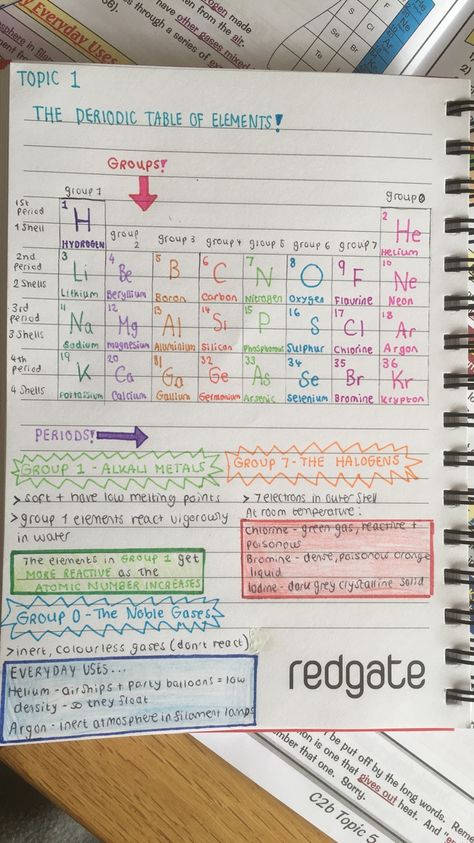 TOPIC 1
THE PERIODIC TABLE OF ELEMENTS!
GROUPS!
group 1
group 0
1st Period
1 Shell
1
H
HYDROGEN
group 2
group 3
group 4
group 5
group 6
group 7
2
He
Helium
2nd Period
2 Shells
3
Li
Lithium
4
Be
Beryllium
5
B
Boron
6
C
Carbon
7
N
Nitrogen
8
O
Oxygen
9
F
Flourine
10
Ne
Neon
3rd Period
3 Shells
11
Na
Sodium
12
Mg
magnesium
13
Al
Aluminium
14
Si
Silicon
15
P
Phosphorous
16
S
Sulphur
17
Cl
Chlorine
18
Ar
Argon
4th Period
4 Shells
19
K
Potassium
20
Ca
Calcium
31
Ga
Gallium
32
Ge
Germanium
33
As
Arsenic
34
Se
Selenium
35
Br
Bromine
36
Kr
Krypton
PERIODS!
GROUP 1 - ALKALI METALS
> soft + have low melting points
> group 1 elements react vigorously
in water
The elements in GROUP 1 get
MORE REACTIVE as the
ATOMIC NUMBER INCREASES
GROUP 7 - THE HALOGENS
> 7 electrons in outer shell
At room temperature:
Chlorine - green gas, reactive +
poisonous
Bromine - dense, poisonous orange
liquid
Iodine - dark grey crystalline solid
GROUP 0 - The Noble Gases
> inert, colourless gases (don't react)
EVERYDAY USES...
Helium - airships + party balloons = low
density - so they float
Argon - inert atmosphere in filament lamps
redgate
y Everyday Uses
have other gases mixed
en from the air.
s through a series of
be put off by the long words. Reme
ion is one that gives out heat. And "e
mber that one. Sorry.
C2b Topic 5